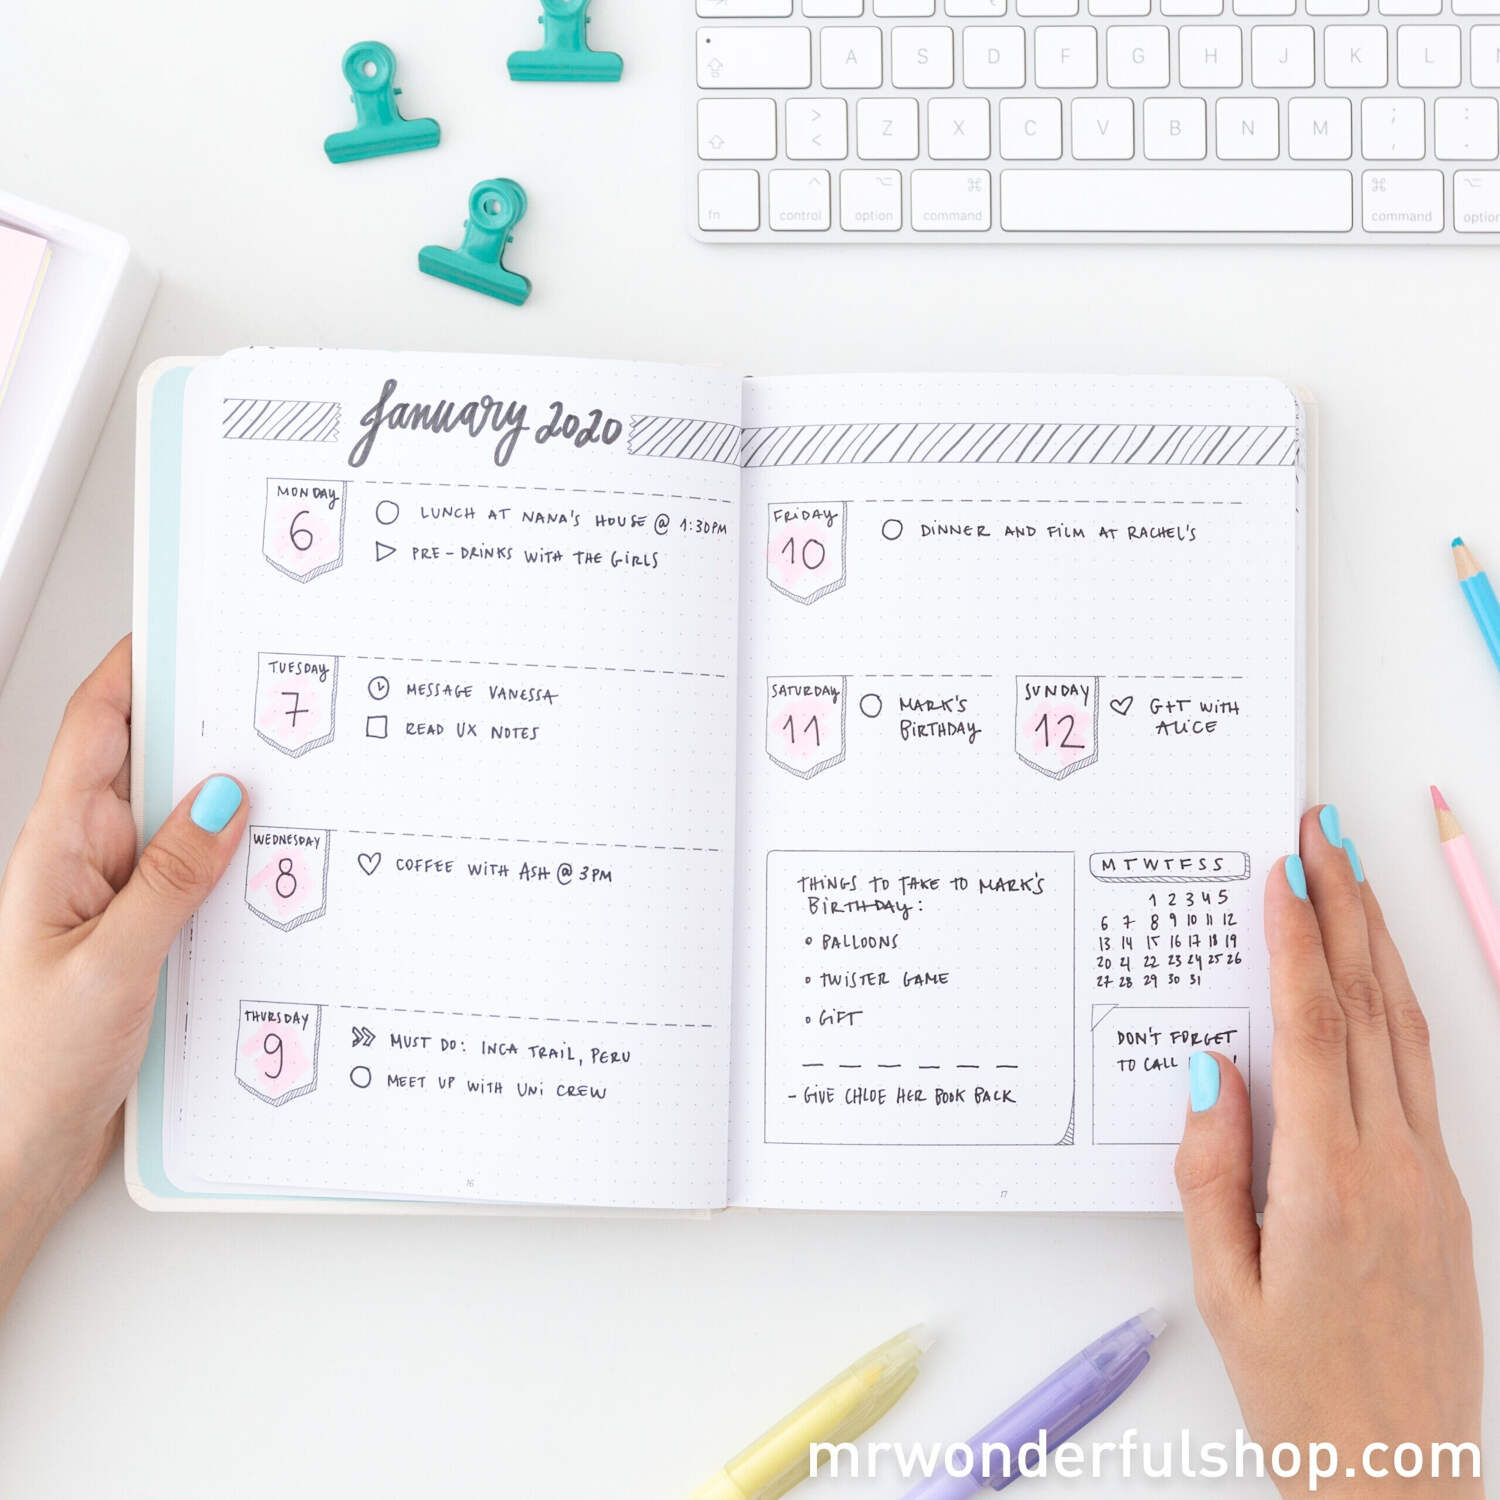 A S D F G H J K L
>
<
Z X C V B N M
;
,
:
.
fn control option command command option
January 2020
MONDAY
6
LUNCH AT NANA'S HOUSE @ 1:30PM
PRE-DRINKS WITH THE GIRLS
TUESDAY
7
MESSAGE VANESSA
READ UX NOTES
WEDNESDAY
8
COFFEE WITH ASH @ 3PM
THURSDAY
9
MUST DO: INCA TRAIL, PERU
MEET UP WITH UNI CREW
16
FRIDAY
10
DINNER AND FILM AT RACHEL'S
SATURDAY
11
MARK'S
BIRTHDAY
SUNDAY
12
G+T WITH
ALICE
THINGS TO TAKE TO MARK'S
BIRTHDAY:
BALLOONS
TWISTER GAME
GIFT
- GIVE CHLOE HER BOOK BACK
M T W T F S S
1 2 3 4 5
6 7 8 9 10 11 12
13 14 15 16 17 18 19
20 21 22 23 24 25 26
27 28 29 30 31
DON'T FORGET
TO CALL
17
mrwonderfulshop.com